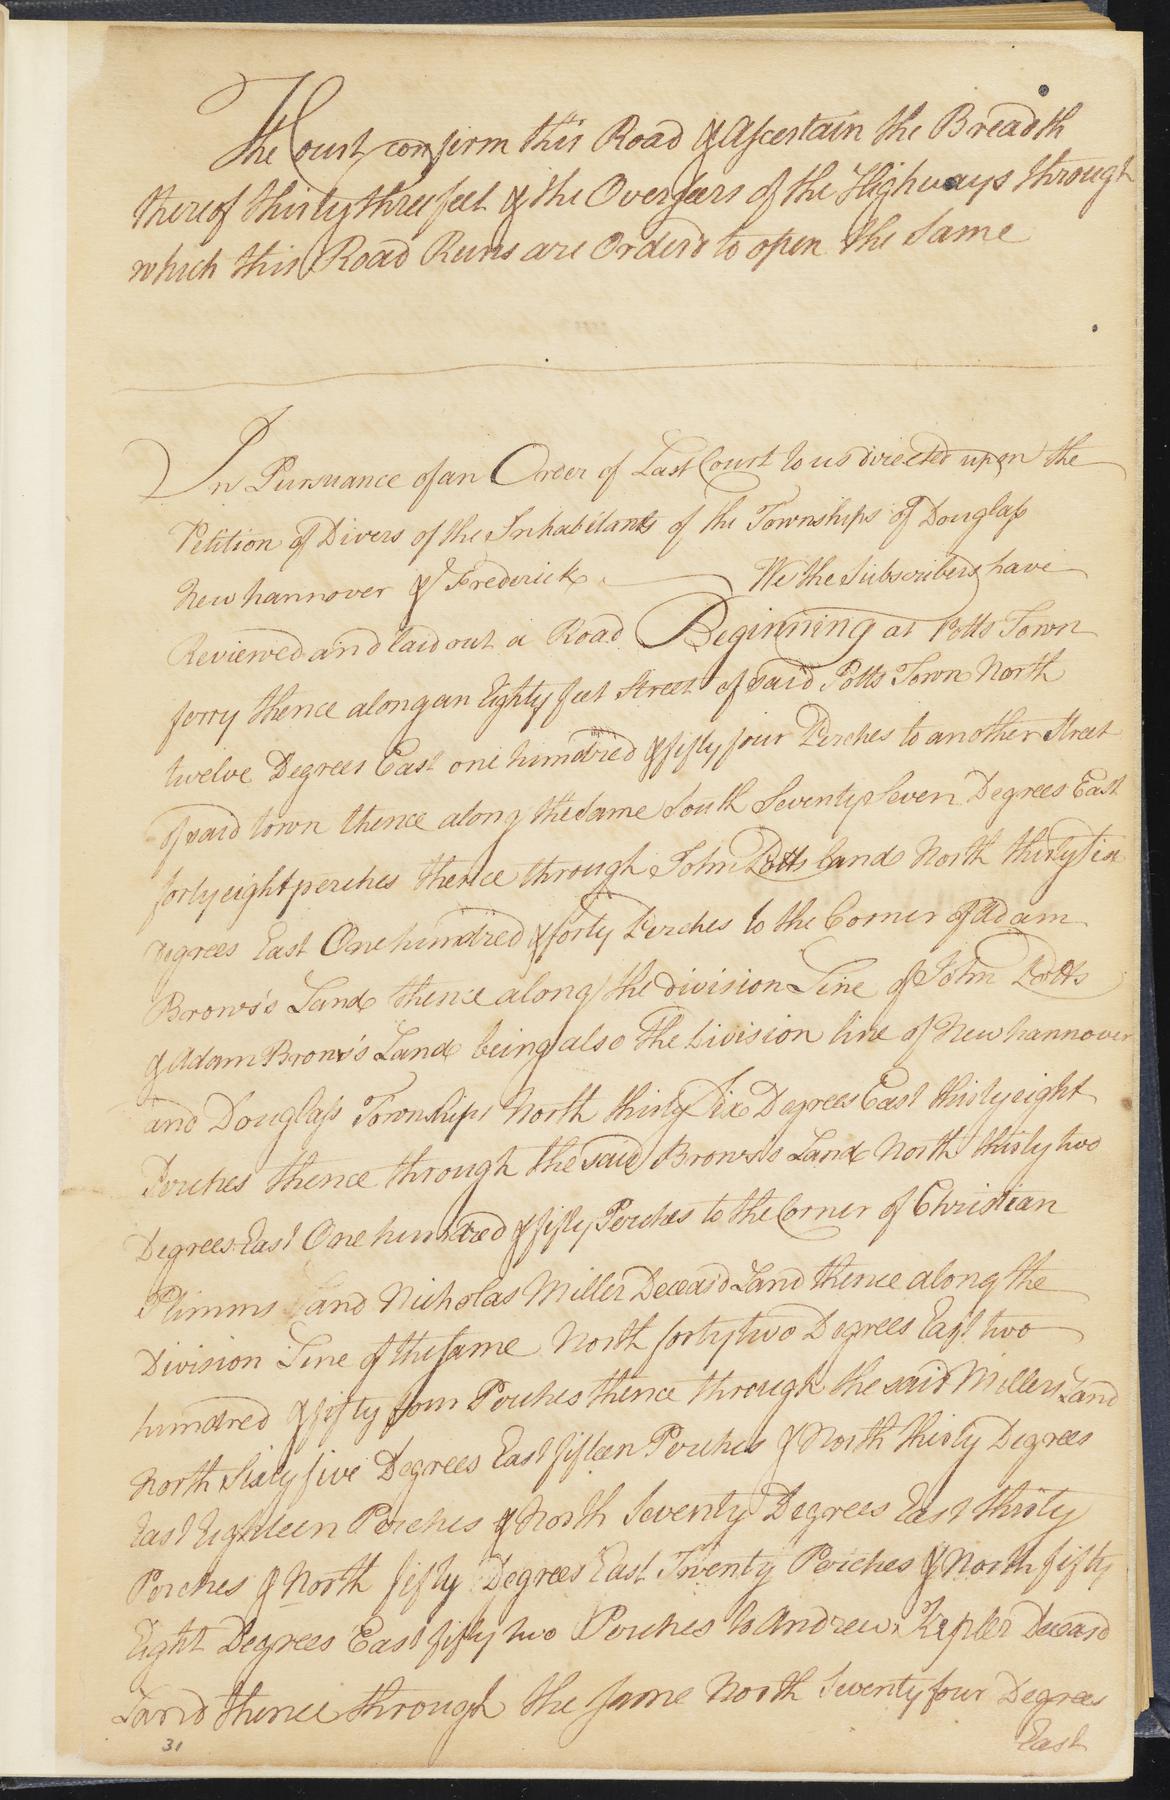 The Court confirm this Road & Ascertain the Breadth
thereof thirty three feet & the Overseers of the Highways through
which this Road Runs are Orderd to open the Same
In Pursuance of an Order of Last Court to us directed upon the
Petition of Divers of the Inhabitants of the Townships of Douglass
New hannover & Frederick We the Subscribers have
Reviewed and laid out a Road Beginning at Potts Town
ferry thence along an Eighty feet Street of said Potts Town North
twelve Degrees East one hundred & fifty four Perches to another Street
of said town thence along the Same South Seventy Seven Degrees East
forty eight perches thence through John Potts land North thirty six
Degrees East One hundred & forty Perches to the Corner of Adam
Brows's Land thence along the division Line of John Potts
& Adam Brows's Land being also the division line of New hannover
and Douglass Townships North thirty Six Degrees East thirty eight
Perches thence through the said Brows's Land North thirty two
Degrees East One hundred & fifty Perches to the Corner of Christian
Plimms and Nicholas Miller Deceasd Land thence along the
Division Line of the same North forty two Degrees East two
hundred & fifty four Perches thence through the said Millers Land
North Sixty five Degrees East fifteen Perches & North thirty Degrees
East Eighteen Perches & North Seventy Degrees East thirty
Perches & North fifty Degrees East Twenty Perches & North fifty
Eight Degrees East fifty two Perches to Andrew Kepler Deceasd
Land thence through the same North Seventy four Degrees
East
31